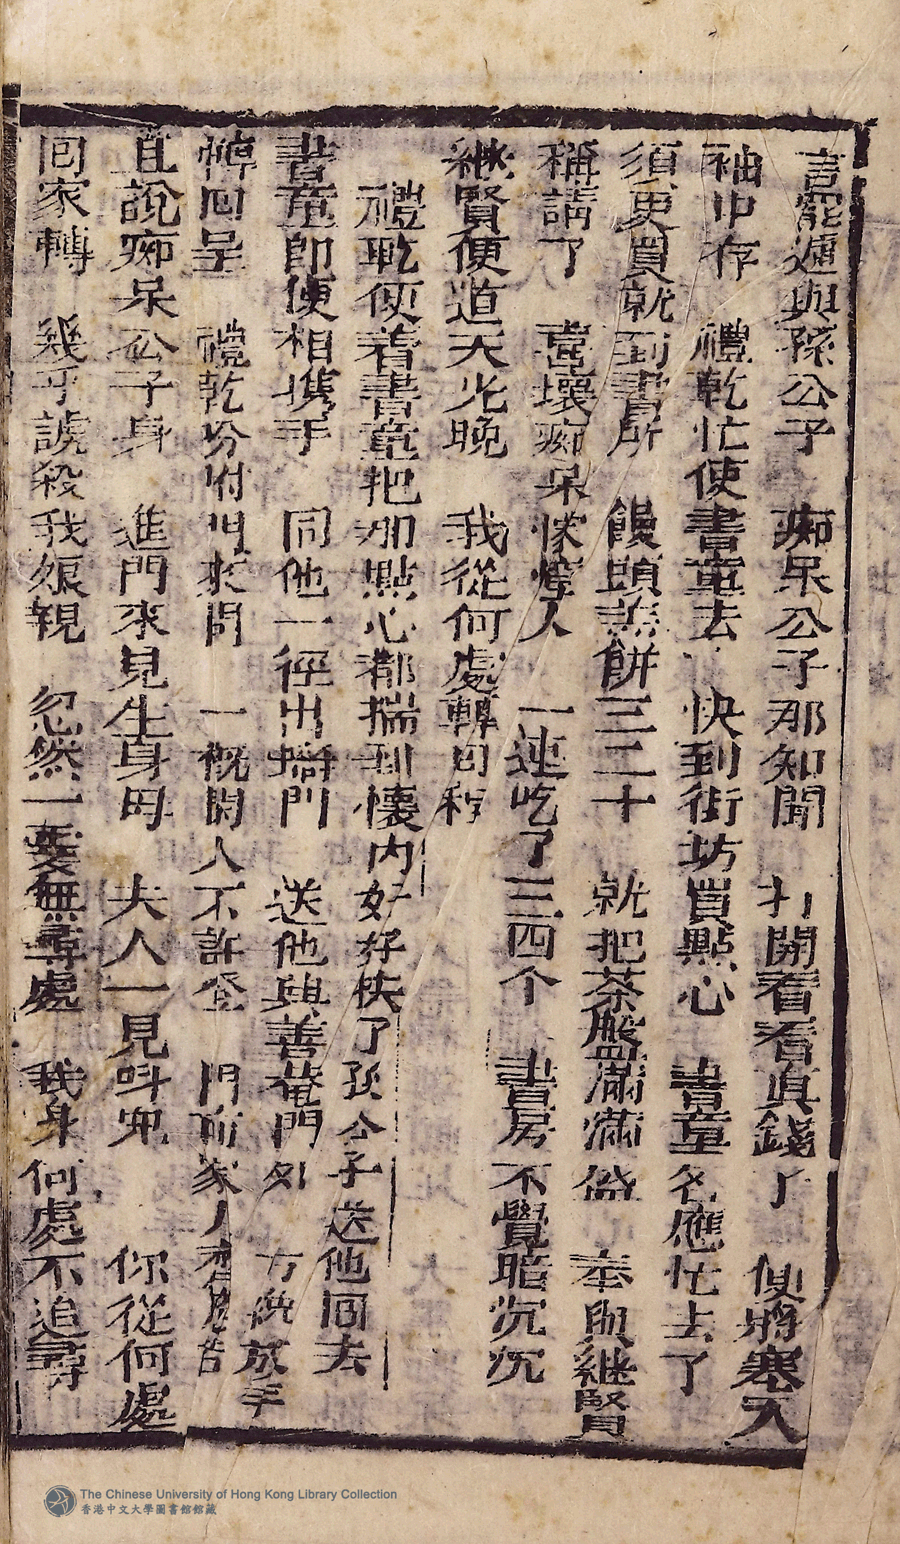 言罷遞與孫公子　痴呆公子那知聞　打開看看真錢了　便將塞入
袖中存　禮乾忙使書童去　快到街坊買點心　書童名應忙去了
須臾買就到書所　饅頭燕餅三二十　就把茶盤滿滿盛　奉與継賢
稱講了　喜壞痴呆懞懂人　一連吃了三四个　書房不覺暗沉沉
継賢便道天光晚　我從何處轉回程
禮乾便着書童把那點心都揣到懷内好好快了孫公子送他回去
書童即便相携手　同他一徑出墻門　送他興善菴門外　方纔放手
轉回呈　禮乾吩咐門來問　一概閑人不許登　門前家人齊應答
直說痴呆公子身　進門來見生身母　夫人一見呌兜　你從何處
回家轉　幾乎諕殺我娘親　忽然一隻無尋處　我身何處不追尋
The Chinese University of Hong Kong Library Collection
香港中文大學圖書館館藏